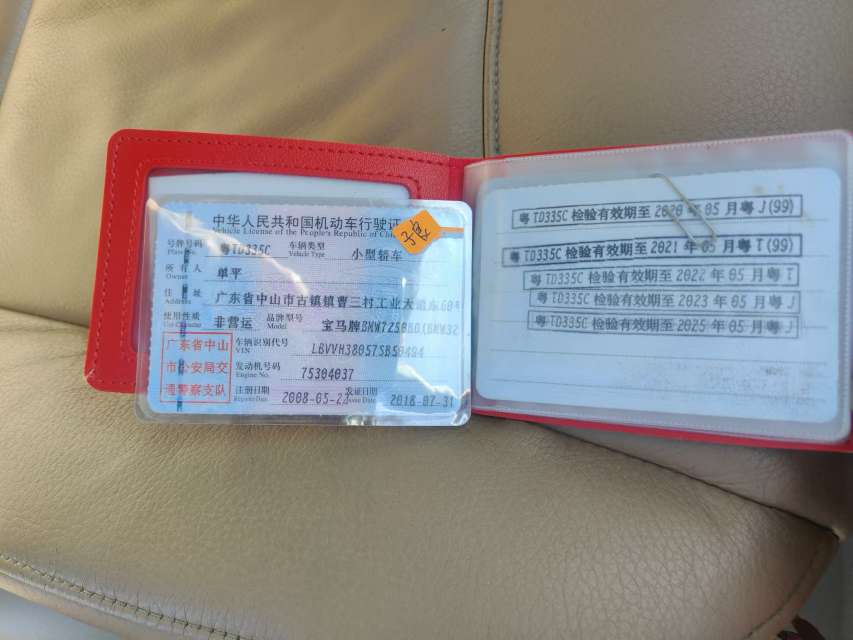 中华人民共和国机动车行驶证
Vehicle License of the People's Republic of China
子良
号牌号码 粤TD335C 车辆类型 小型轿车
Plate No. Vehicle Type
所有人 单平
Owner
住址 广东省中山市古镇镇曹三村工业大道东60号
Address
使用性质 非营运 品牌型号 宝马牌
Use Character Model
广东省中山 车辆识别代号
VIN
市公安局交 发动机号码 75304037
Engine No.
通警察支队 注册日期 2008-05-2 发证日期 2018-07-31
Register Date Issue Date
粤TD335C 检验有效期至 2020 年 05 月 粤J(99)
粤TD335C 检验有效期至 2021 年 05 月 粤T(99)
粤TD335C 检验有效期至 2022 年 05 月 粤T
粤TD335C 检验有效期至 2023 年 05 月 粤J
粤TD335C 检验有效期至 2025 年 05 月 粤J